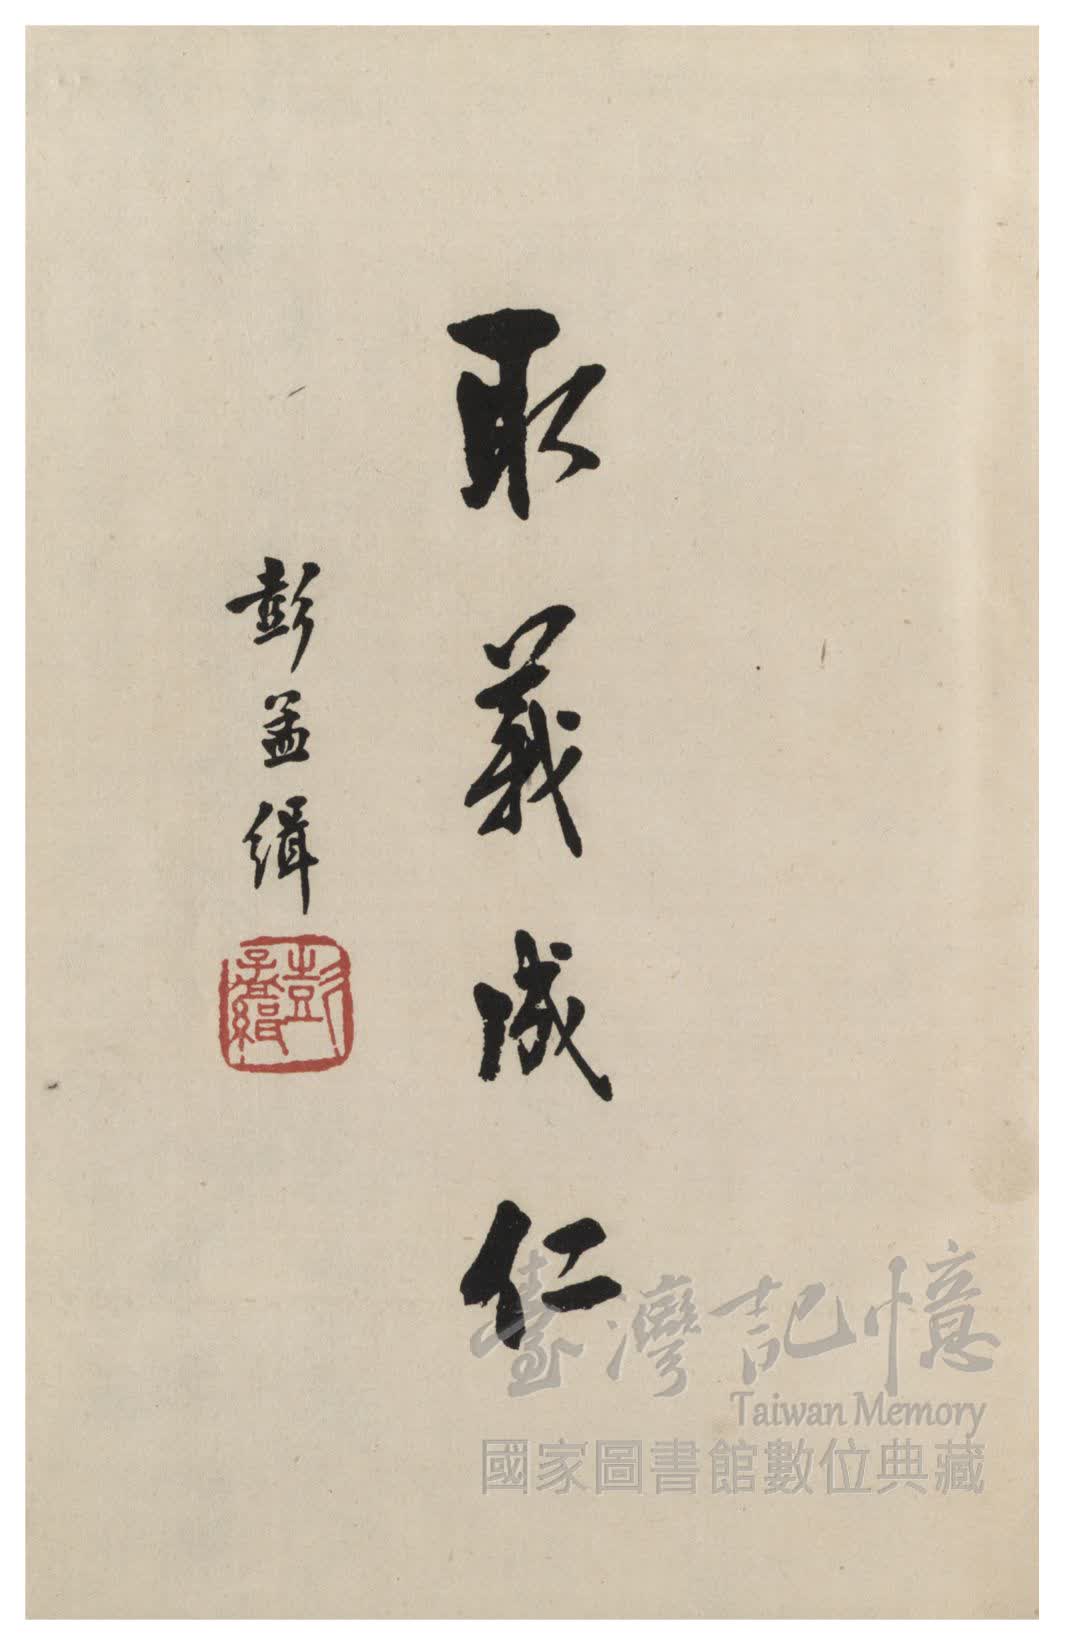 取義成仁
彭孟緝
臺灣記憶
Taiwan Memory
國家圖書館數位典藏